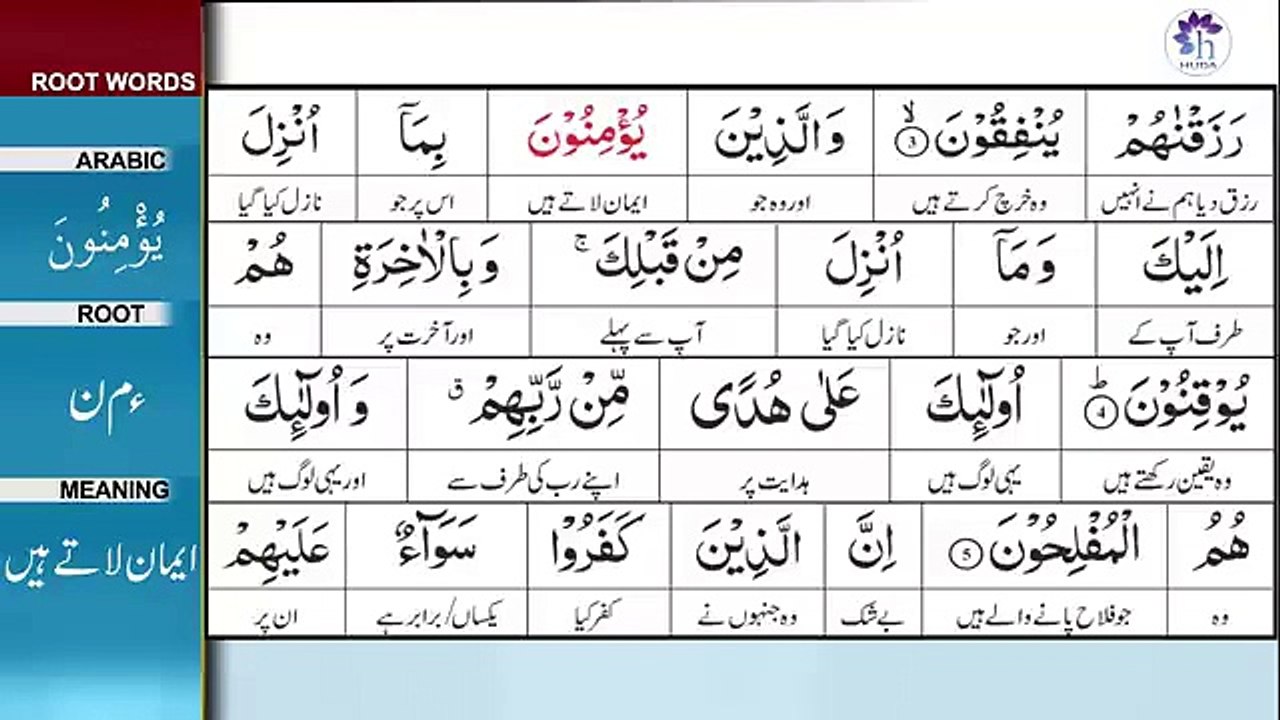 HUDA
ROOT WORDS
ARABIC
يُؤْمِنُونَ
ROOT
ء م ن
MEANING
ایمان لاتے ہیں
رَزَقْنٰهُمْ يُنْفِقُوْنَ ۙ3 وَالَّذِيْنَ يُؤْمِنُوْنَ بِمَآ اُنْزِلَ
رزق دیا ہم نے انہیں وہ خرچ کرتے ہیں اور وہ جو ایمان لاتے ہیں اس پر جو نازل کیا گیا
اِلَيْكَ وَمَآ اُنْزِلَ مِنْ قَبْلِكَ ۚ وَبِالْاٰخِرَةِ هُمْ
طرف آپ کے اور جو نازل کیا گیا آپ سے پہلے اور آخرت پر وہ
يُوْقِنُوْنَ ؕ4 اُولٰٓئِكَ عَلٰى هُدًى مِّنْ رَّبِّهِمْ ۗ وَ اُولٰٓئِكَ
وہ یقین رکھتے ہیں یہی لوگ ہیں ہدایت پر اپنے رب کی طرف سے اور یہی لوگ ہیں
هُمُ الْمُفْلِحُوْنَ 5 اِنَّ الَّذِيْنَ كَفَرُوْا سَوَآءٌ عَلَيْهِمْ
وہ جو فلاح پانے والے ہیں بے شک وہ جنہوں نے کفر کیا یکساں/برابر ہے ان پر